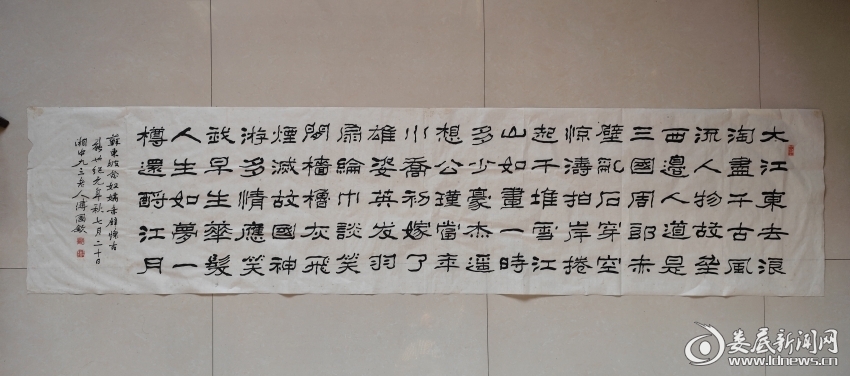 大江東去浪
淘盡千古風
流人物故垒
西邊人道是
三國周郎赤
壁亂石穿空
惊濤拍岸捲
起千堆雪江
山如畫一時
多少豪杰遥
想公瑾當年
小喬初嫁了
雄姿英发羽
扇綸巾談笑
間檣櫓灰飛
煙滅故國神
游多情應笑
我早生華髮
人生如夢一
樽還酹江月
蘇東坡念奴嬌赤壁懷古
新世纪元年秋七月二十日
湘中九三老人傅國欽
娄底新闻网
www.ldnews.cn